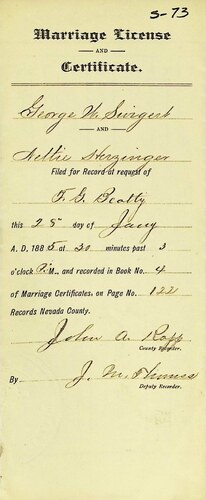 S-73
Marriage License
AND
Certificate.
George W. Swigert
AND
Nellie Herzinger
Filed for Record at request of
F. G. Beatty
this 28 day of Jany
A. D. 1885 at 20 minutes past 3
o'clock P. M., and recorded in Book No. 4
of Marriage Certificates, on Page No. 122
Records Nevada County.
John A. Rapp
County Recorder.
By J. M. Thomas
Deputy Recorder.